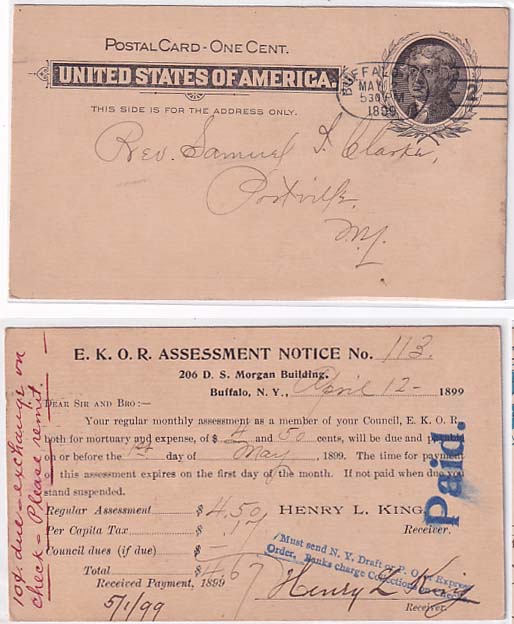 POSTAL CARD - ONE CENT.
UNITED STATES OF AMERICA.
THIS SIDE IS FOR THE ADDRESS ONLY.
BUFFAL
MAY
530P
1899
2
Rev. Samuel I. Clarke,
Portville,
N.Y.
E. K. O. R. ASSESSMENT NOTICE No. 113.
206 D. S. Morgan Building.
Buffalo, N. Y., April 12- 1899
DEAR SIR AND BRO:—
Your regular monthly assessment as a member of your Council, E. K. O. R.
both for mortuary and expense, of $ 4 and 50 cents, will be due and
on or before the 1st day of May, 1899. The time for payment
of this assessment expires on the first day of the month. If not paid when due you
stand suspended.
Regular Assessment $ 4.50
HENRY L. KING,
Per Capita Tax 17
Receiver.
Council dues (if due) $ —
Total $ 4.67
Received Payment, 1899
5/1/99
Henry L King
Receiver.
Paid.
Must send N. Y. Draft or P. O. or Express
Order. Banks charge on
10¢ due - exchange on
check - Please remit -